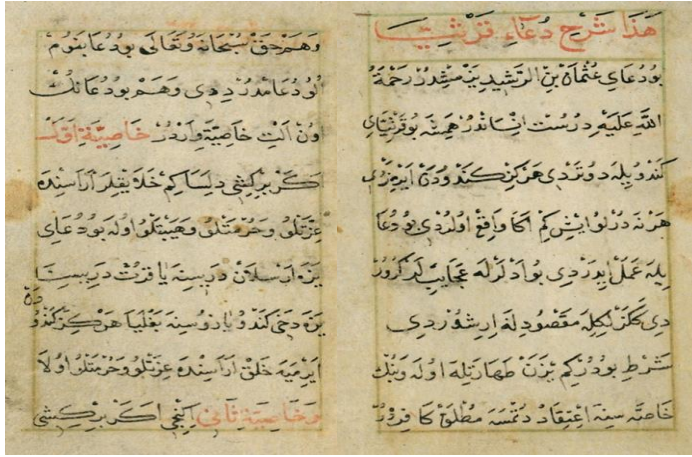 هَذَا شَرْحِ دُعَاءِ
بُودُعَاىِ عُثْمَانَ بْنِ الرَّشِيد يَزْمِشْدُرْ رَحْمَةُ
اللّٰهِ عَلَيْهِ دِرُسْتْ اِنْسَانْدُرْ هَمِيشَه
كَنْدُو بِيلَه دُوتَرْدِى هَرْكِزْ كَنْدُودَنْ اَيِرْمَزْدِى
هَرْنَه دُرْلُو اِيشْ كِمْ اَكَا وَاقِعْ اُولُرْدِى بُو دُعَا
بِيلَه عَمَلْ اِيدَرْدِى بُو اَدْلَرْلَه عَجَايِبْلَرْ كُرُورْ
دِى مَقْصُودِلَه اِرِشُورْدِى
شَرْطِ بُودُرْكِمْ يَزَنْ طَهَارَتِلَه اُولَه وَبُنُكْ
خَاصَّتَه سِنَه اِعْتِقَادْ دُتْمَسَه مُطْلَقْ كَافِرْدُرْ
وَهَمْ حَقْ سُبْحَانَهُ وَتَعَالَى بُودُعَا
دِدِى وَهَمْ بُودُعَانُكْ
وُنْ اَلْتِ خَاصِيَّةْ وَارْدُرْ خَاصِيَّةِ اَوَّلْ
اَكَرْ بِرْ كِشِى دِلَسَا كِمْ خَلَايِقْلَرْ اَرَاسِنْدَه
عِزَّتْلُو وَحُرْمَتْلُو وَهَيْبَتْلُو اُولَه بُو دُعَاىِ
يَزَه اَرْسَلَانْ دَرِيسِنَه يَا قُرْتْ دَرِيسِنَه
يَزَه دَخِى كَنْدُو بَازُوسِنَه بَغْلَيَا هَرْكِزْ كَنْدُودَنْ
اَيِرْمِيَه خَلْقْ اَرَاسِنْدَه عِزَّتْلُو وَحُرْمَتْلُو اُولَا
وَخَاصِيَّةِ ثَانِى اِكِنْجِى اَكَرْ بِرْ كِيشِى